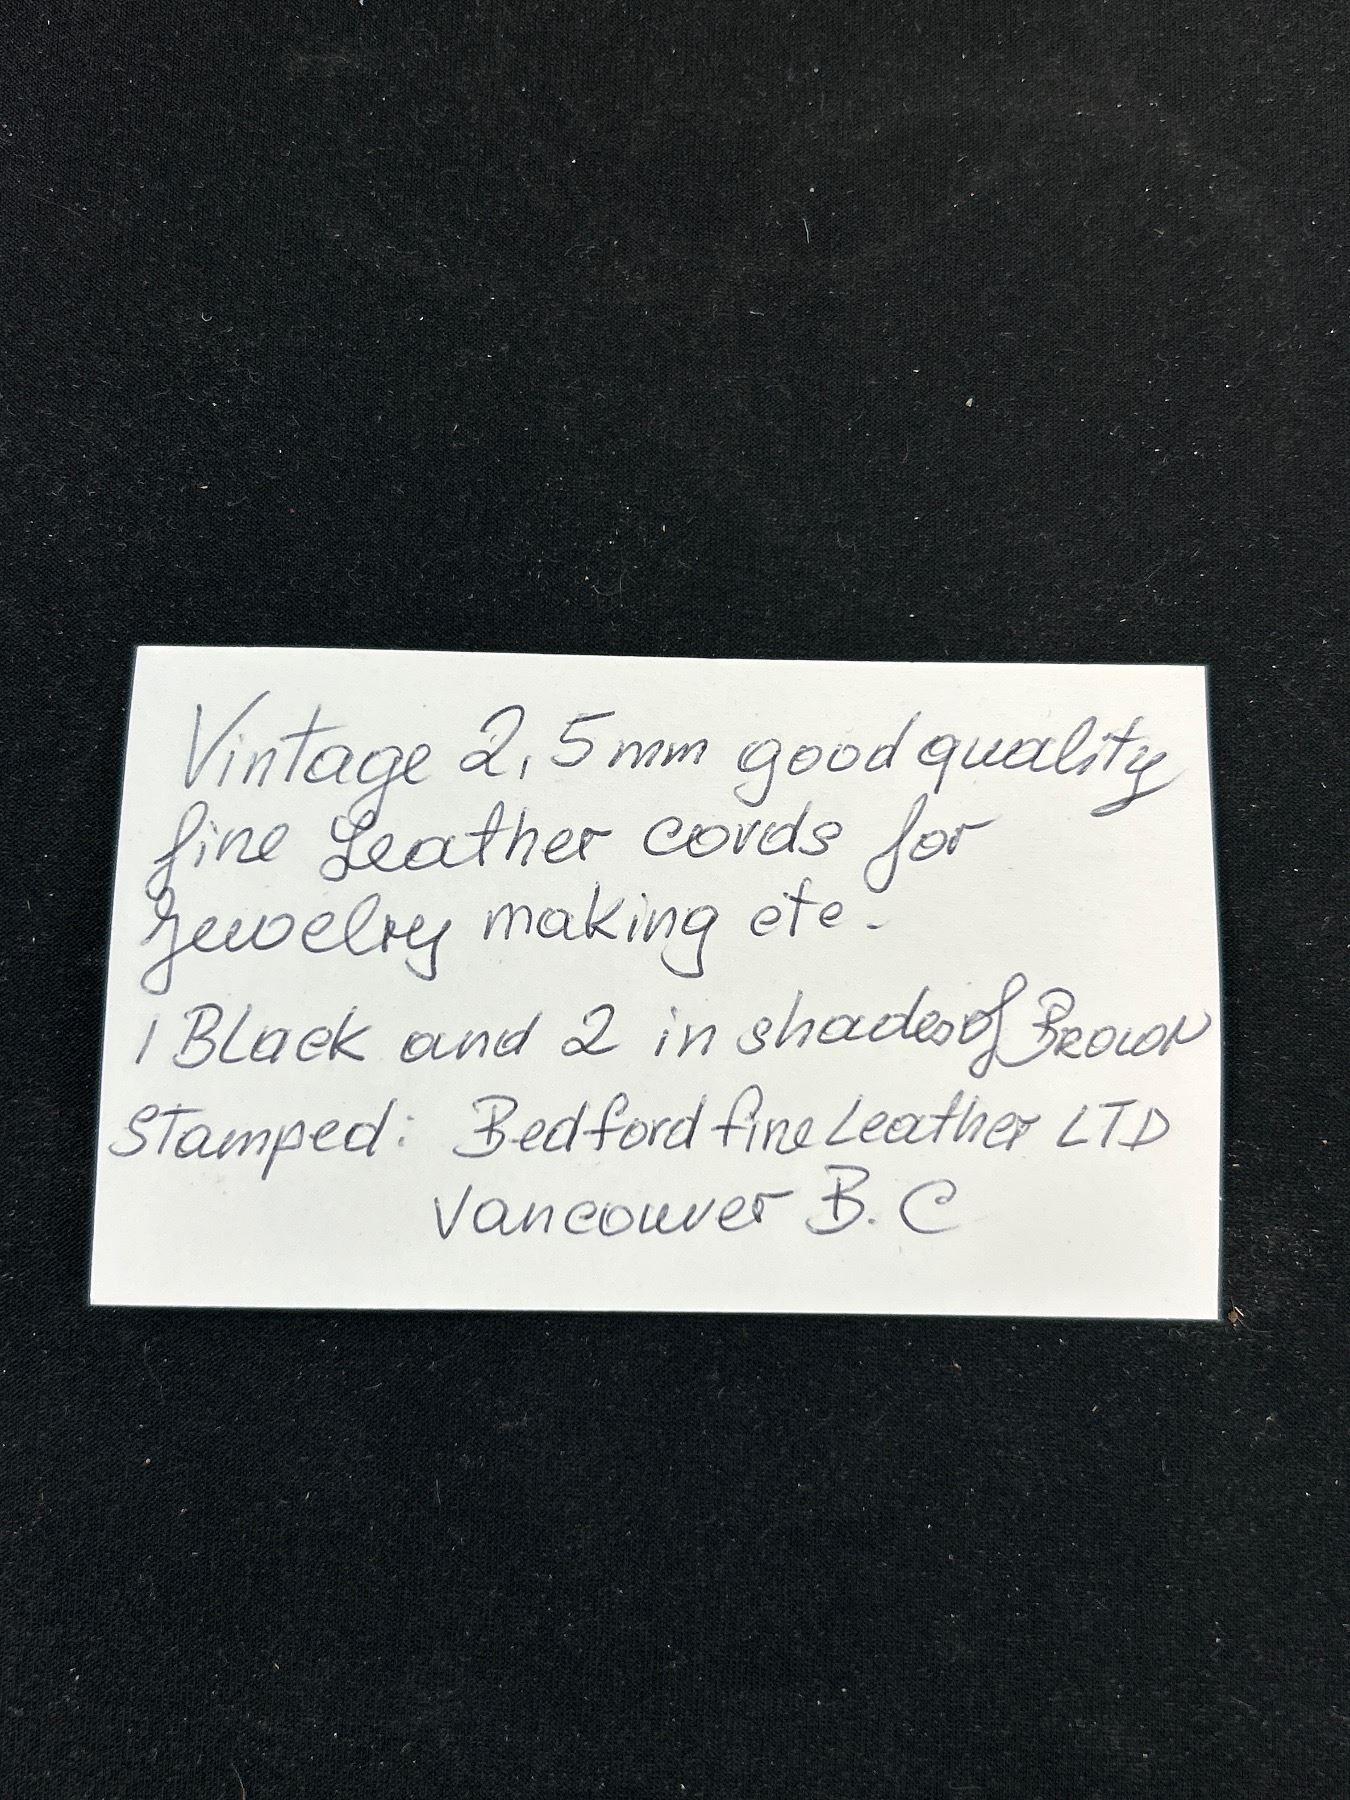 Vintage 2,5mm good quality
fine Leather cords for
Jewelry making etc.
1 Black and 2 in shades of Brown
Stamped: Bedford fine Leather LTD
Vancouver B.C